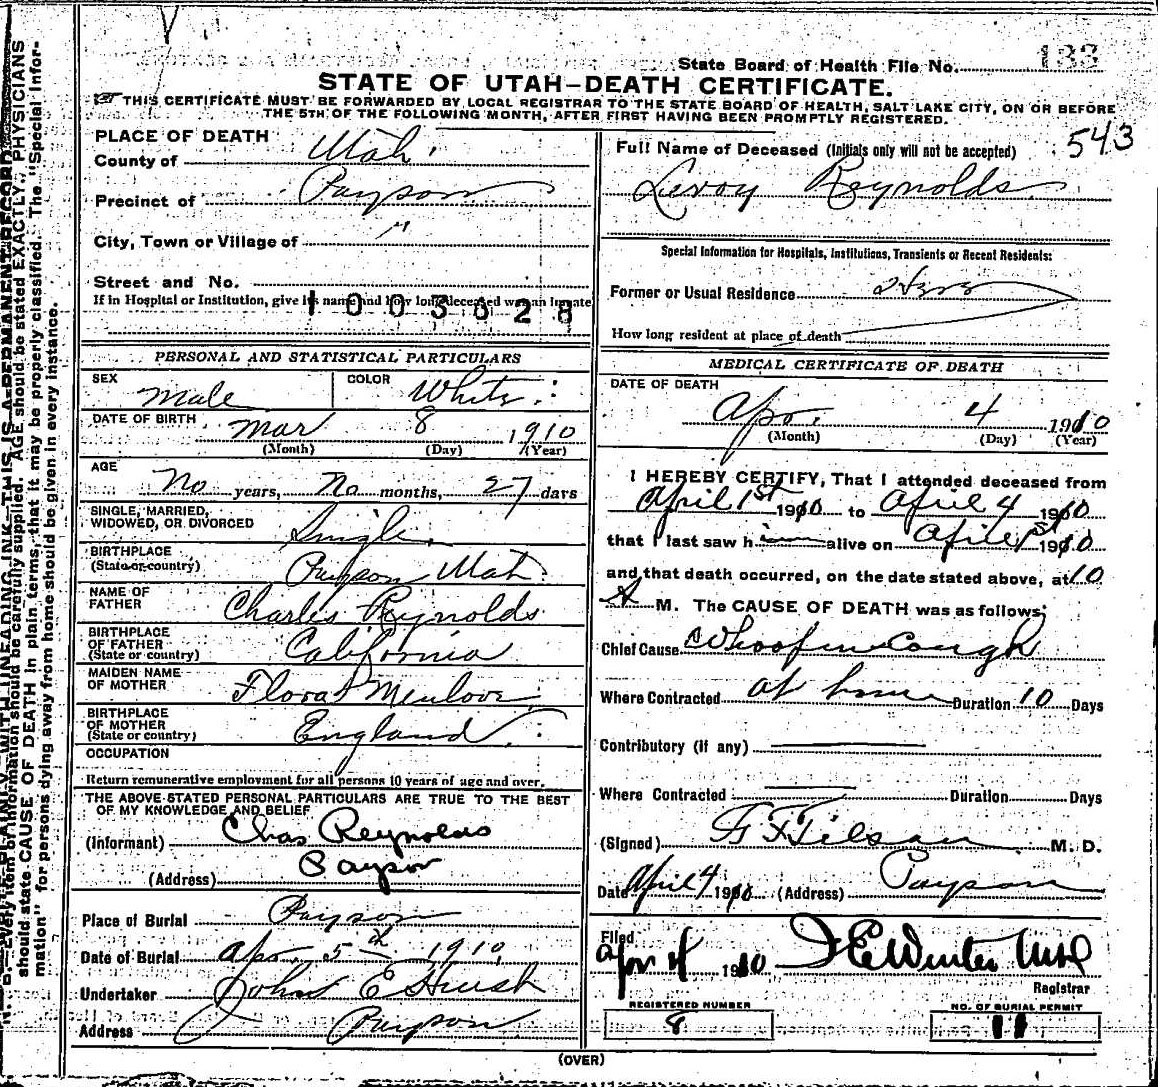 State Board of Health File No. 133
STATE OF UTAH-DEATH CERTIFICATE.
THIS CERTIFICATE MUST BE FORWARDED BY LOCAL REGISTRAR TO THE STATE BOARD OF HEALTH, SALT LAKE CITY, ON OR BEFORE
THE 5TH OF THE FOLLOWING MONTH, AFTER FIRST HAVING BEEN PROMPTLY REGISTERED.
543
PLACE OF DEATH
County of Utah
Precinct of Payson
City, Town or Village of "
Street and No.
If in Hospital or Institution, give its name and how long deceased was an Inmate
1003628
Full Name of Deceased (Initials only will not be accepted)
Leroy Reynolds
Special Information for Hospitals, Institutions, Transients or Recent Residents:
Former or Usual Residence
How long resident at place of death
PERSONAL AND STATISTICAL PARTICULARS
SEX Male COLOR White
DATE OF BIRTH Mar 8 1910
(Month) (Day) (Year)
AGE No years, No months, 27 days
SINGLE, MARRIED,
WIDOWED, OR DIVORCED Single
BIRTHPLACE
(State or country) Payson Utah
NAME OF
FATHER Charles Reynolds
BIRTHPLACE
OF FATHER
(State or country) California
MAIDEN NAME
OF MOTHER Flora Menlove
BIRTHPLACE
OF MOTHER
(State or country) England
OCCUPATION
Return remunerative employment for all persons 10 years of age and over.
THE ABOVE STATED PERSONAL PARTICULARS ARE TRUE TO THE BEST
OF MY KNOWLEDGE AND BELIEF
(Informant) Chas Reynolds
(Address) Payson
Place of Burial Payson
Date of Burial Apr. 5th 1910
Undertaker John E Huish
Address Payson
MEDICAL CERTIFICATE OF DEATH
DATE OF DEATH
Apr. 4 1910
(Month) (Day) (Year)
I HEREBY CERTIFY, That I attended deceased from
April 1st 1910 to April 4 1910
that I last saw him alive on April 1st 1910
and that death occurred, on the date stated above, at 10
A M. The CAUSE OF DEATH was as follows:
Chief Cause Whoopin Cough
Where Contracted at home Duration 10 Days
Contributory (if any)
Where Contracted Duration Days
(Signed) Tilson M. D.
Date April 4 1910 (Address) Payson
Filed
Apr 4 1910 E Winter
Registrar
REGISTERED NUMBER
8
NO. OF BURIAL PERMIT
11
(OVER)
should state CAUSE OF DEATH in plain terms, that it may be properly classified. The "Special Infor-
mation" for persons dying away from home should be given in every instance.